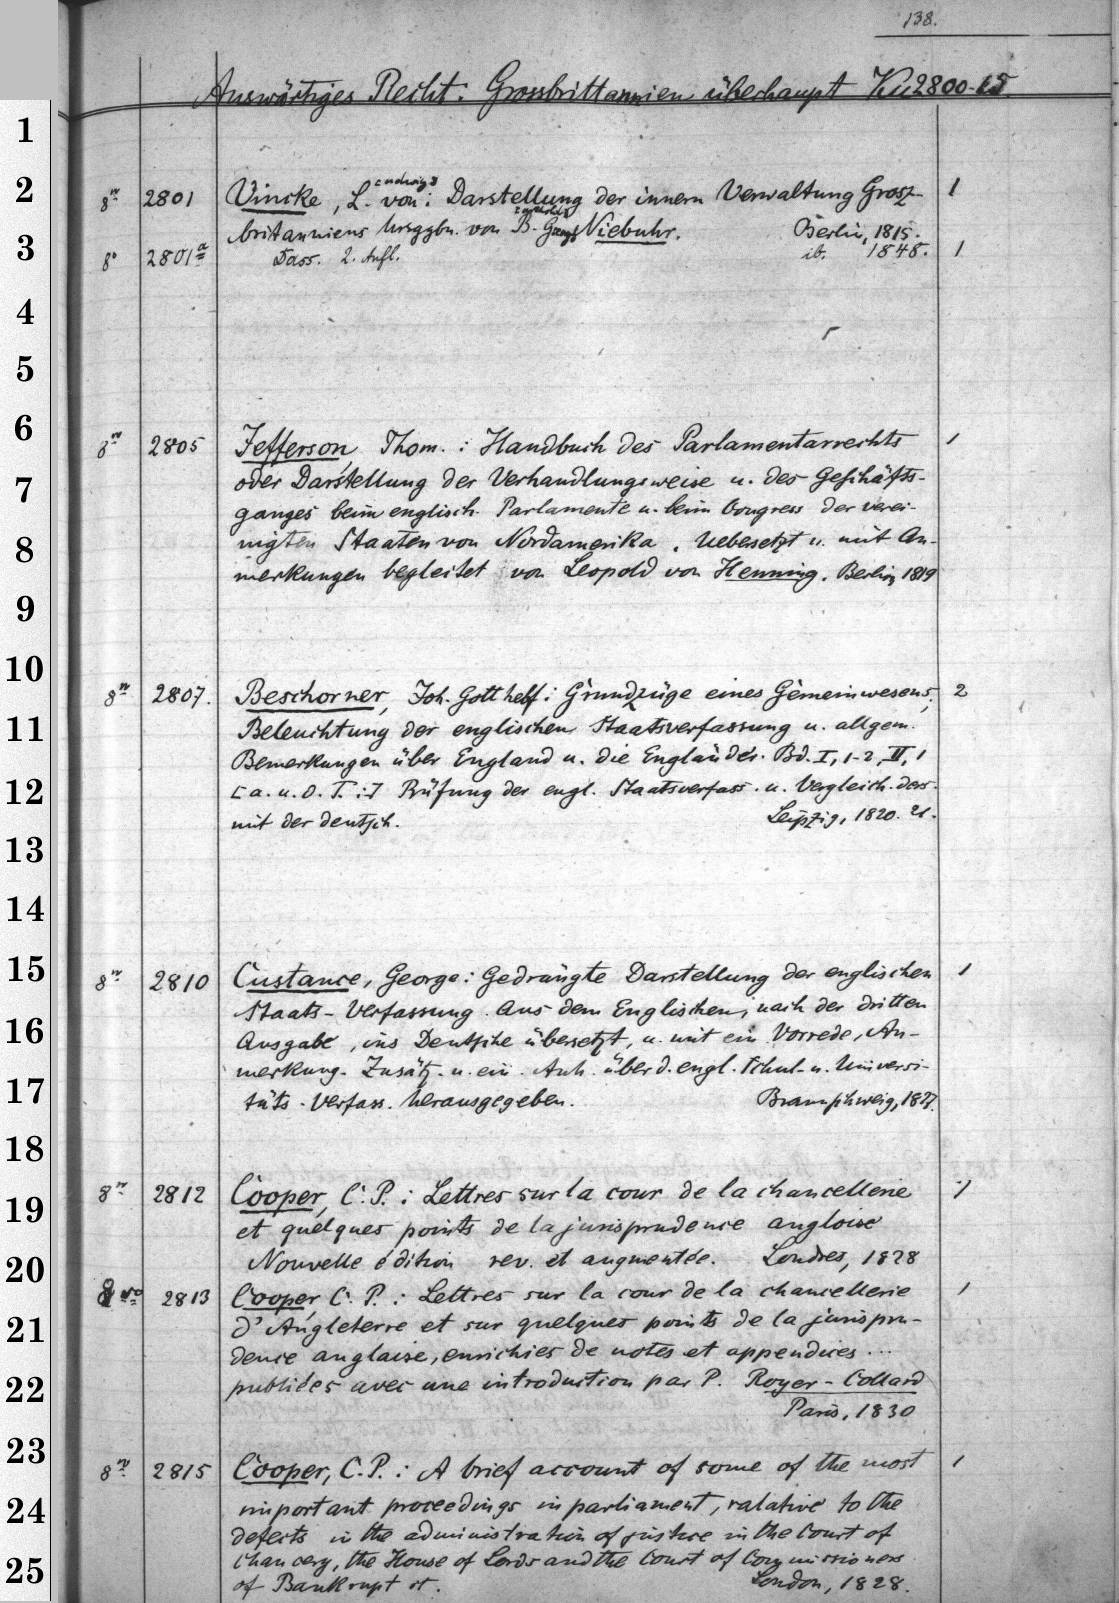 138.
Auswärtiges Recht: Grossbrittannien überhaupt Ku 2800-15.
1
2
8º 2801 Vincke, L. [udwig] von: Darstellung der innern Verwaltung Grosz- 1
britanniens hrsggbn. von B. G. Niebuhr. Berlin, 1815.
3
8º 2801a Dass. 2. Aufl. ib. 1848. 1
4
5
6
8º 2805 Jefferson Thom.: Handbuch des Parlamentarrechts 1
7
oder Darstellung der Verhandlungsweise u. des Geschäfts-
ganges beim englisch. Parlamente u. beim Congress der verei-
8
nigten Staaten von Nordamerika. Uebersetzt u. mit An-
merkungen begleitet von Leopold von Henning. Berlin, 1819
9
10
8º 2807. Beschorner, Joh. Gotthelf: Grundzüge eines Gemeinwesens, 2
11
Beleuchtung der englischen Staatsverfassung u. allgem.
Bemerkungen über England u. die Engländer. Bd. I, 1-2, II, 1
12
[a. u. d. T.:] Prüfung der engl. Staatsverfass. u. Vergleich. ders.
mit der deutsch. Leipzig, 1820. 21.
13
14
15
8º 2810 Custance, George: Gedrängte Darstellung der englischen 1
Staats-Verfassung. Aus dem Englischen, nach der dritten
16
Ausgabe, ins Deutsche übersetzt, u. mit ein. Vorrede, An-
merkung. Zusätz. u. ein. Anh. über d. engl. Schul- u. Universi-
17
täts-Verfass. herausgegeben. Braunschweig, 1827.
18
8º 2812 Cooper, C. P.: Lettres sur la cour de la chancellerie 1
19
et quelques points de la jurisprudence angloise
20
Nouvelle édition rev. et augmentée. Londres, 1828
8vo 2813 Cooper, C. P.: Lettres sur la cour de la chancellerie 1
21
d'Angleterre et sur quelques points de la jurispru-
dence anglaise, enrichies de notes et appendices...
22
publiées avec une introduction par P. Royer-Collard
Paris, 1830
23
8º 2815 Cooper, C. P.: A brief account of some of the most 1
24
important proceedings in parliament, ralative to the
defects in the administration of justice in the Court of
25
Chancery, the House of Lords and the Court of Commissioners
of Bankrupt et. London, 1828.